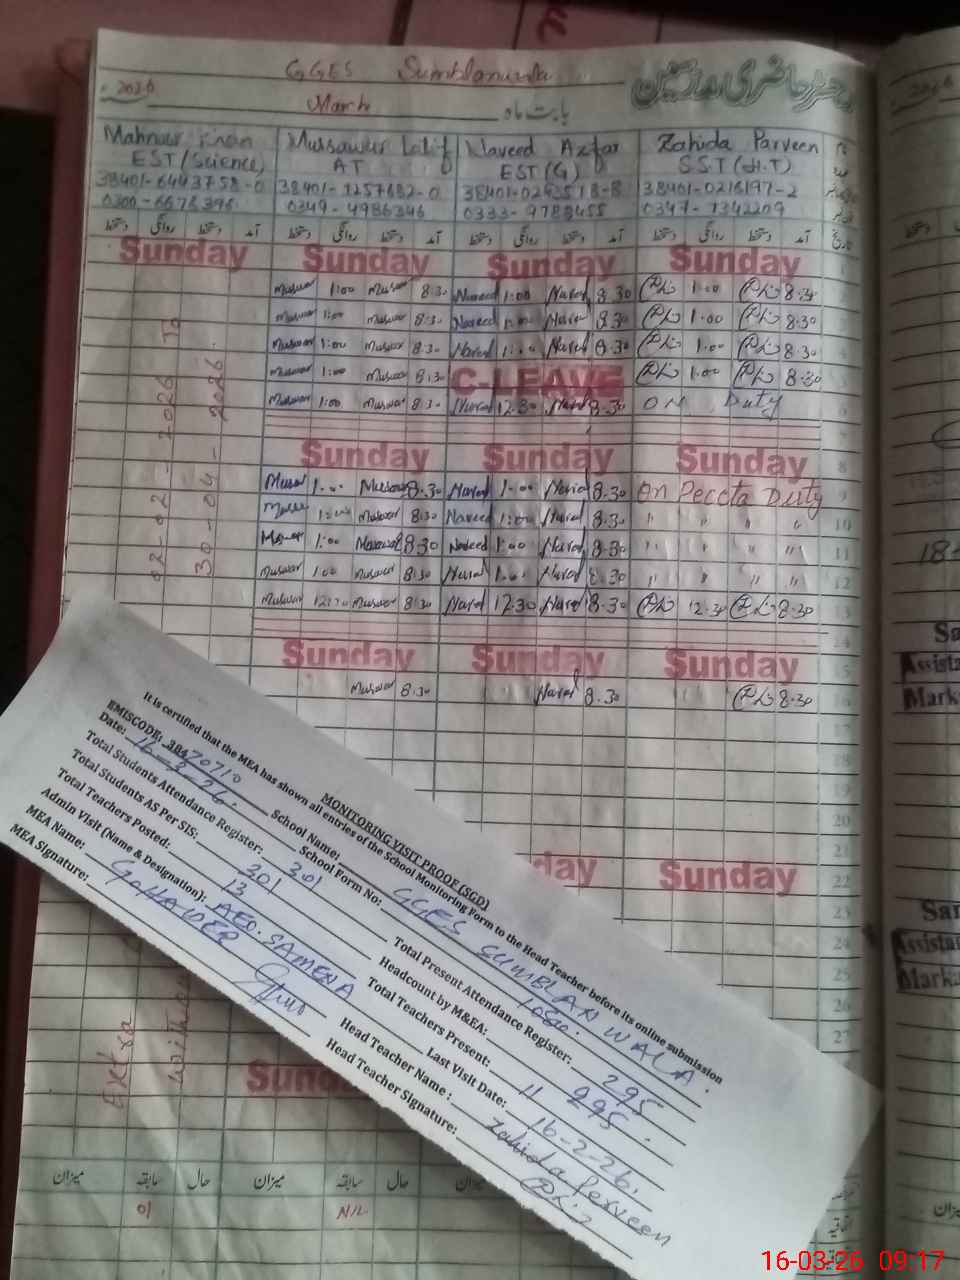 GGES Sumblanwala
رجسٹر حاضری مدرسین
2026
March
بابت ماہ
Mahnur Khan Mussawar Latif Naveed Azfar Zahida Parveen
EST (Science) AT EST (G) SST (H.T)
38401-6443758-0 38401-7257682-0 38401-0216197-2
0333-9788455 0347-7342209
دستخط روانگی دستخط آمد دستخط روانگی دستخط آمد دستخط روانگی دستخط آمد دستخط روانگی دستخط آمد
Sunday Sunday Sunday Sunday
Musawar 1:00 Musawar 8:30 Naveed 1:00 Naved 8.30 1:00 8:30
Musawar 1:00 Musawar 8:30 Naveed 1:00 Naved 8.30 1:00 8:30
Musawar 1:00 Musawar 8:30 Naved 1:00 Naved 8.30 1:00 8:30
Musawar 1:00 Musawar 8:30 C-LEAVE 1:00 8:30
Musawar 1:00 Musawar 8:30 Naved 12.30 Naved 8.30 ON Duty
Sunday Sunday Sunday 8
1:00 Musawar 8.30 Naved 1:00 Naved 8.30 On Pecota Duty 9
1:00 Musawar 8:30 Naveed 1:00 Naved 8.30 " " " " 10
1:00 Musawar 8:30 Naveed 1:00 Naved 8.30 " " " " 11
Musawar 1:00 Musawar 8:30 Naved 1:00 Naved 8.30 " " " " 12
Musawar 12:30 Musawar 8:30 Naved 12.30 Naved 8.30 12.30 8:30 13
14
Sunday Sunday Sunday 15
Musawar 8.30 Naved 8.30 8:30 16
17
18
19
20
21
Sunday Sunday 22
23
24
25
26
27
02-02-2026 To
30-04-2026.
Sunday
میزان سابقہ حال میزان سابقہ حال میزان
01 NIL
MONITORING VISIT PROOF (SGD)
It is certified that the MEA has shown all entries of the School Monitoring Form to the Head Teacher before its online submission
EMISCODE: 38470710 School Name: GGES SUMBLAN WALA.
Date: 16-3-26. School Form No: 1080.
Total Students Attendance Register: 301 Total Present Attendance Register: 295
Total Students AS Per SIS: 301 Headcount by M&EA: 295.
Total Teachers Posted: 13 Total Teachers Present: 11
Admin Visit (Name & Designation): AEO. SAMENA Last Visit Date: 16-2-26.
MEA Name: GOHAWER Head Teacher Name: Zahida Perveen
MEA Signature: Head Teacher Signature:
Assista
Mark
Assista
Marka
16-03-26 09:17